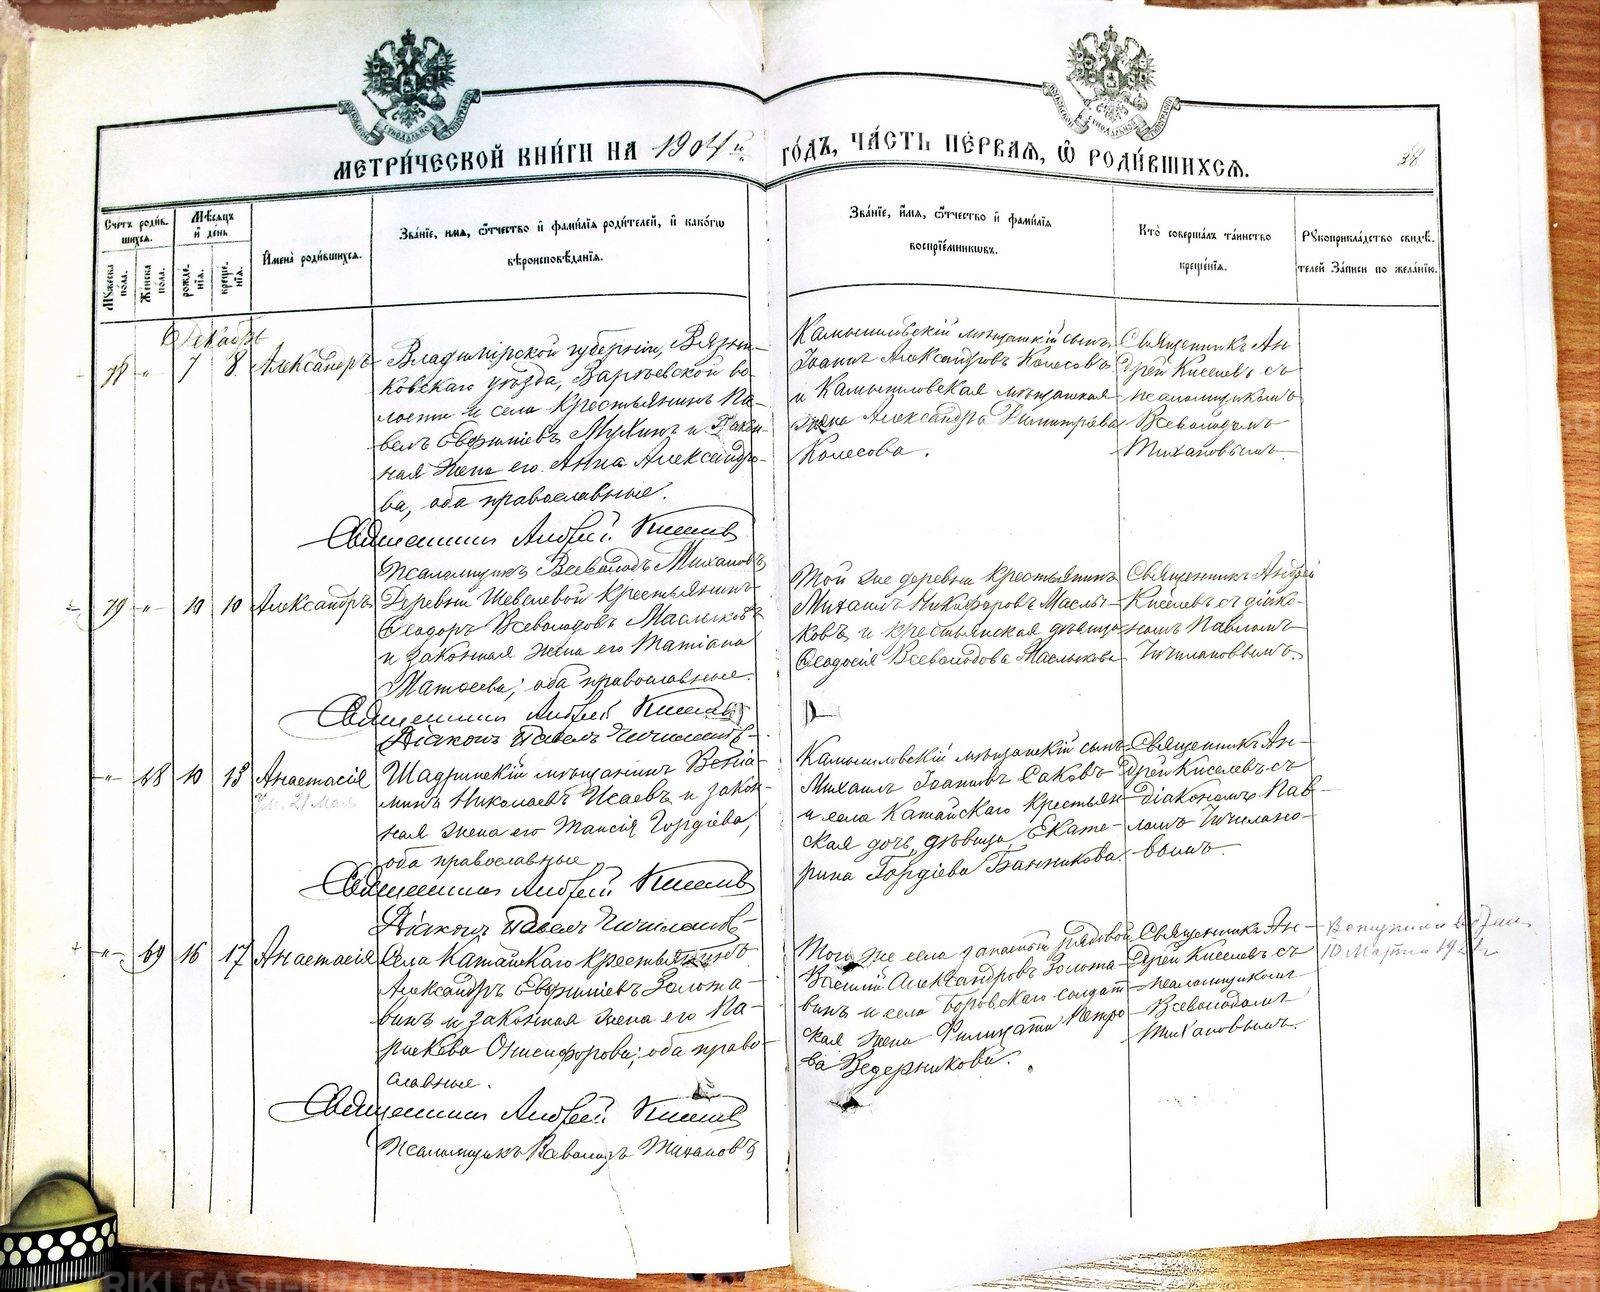 МЕТРИЧЕСКОЙ КНИГИ НА 1904й ГОДЪ, ЧАСТЬ ПЕРВАЯ, Ѡ РОДИВШИХСЯ.
Счетъ родив-
шихся.
Мужеска пола.
Женска пола.
Мѣсяцъ
и день
рожде-
нія.
креще-
нія.
Имена родившихся.
Званіе, имя, ѿчество и фамилія родителей, и какогѡ
вѣроисповѣданія.
Званіе, имя, ѿчество и фамилія
воспріемниковъ.
Кто совершалъ таинство
крещенія.
Рукоприкладство свидѣ-
телей записи по желанію.
Декабрь
78 „ 7 8 Александръ
Владимірской губерніи, Вязни-
ковскаго уѣзда,
лости и села крестьянинъ Па-
велъ Евфиміевъ Мухинъ и закон-
ная жена его Анна Александро-
ва, оба православные.
Священникъ Андрей Киселевъ
Псаломщикъ Всеволодъ Тихановъ
Камышловскій мѣщанскій сынъ
Іоаннъ Александровъ Колесовъ
и Камышловская мѣщанская
жена Александра Димитріева
Колесова.
Священникъ Ан-
дрей Киселевъ съ
псаломщикомъ
Всеволодомъ
Тихановымъ.
79 „ 10 10 Александръ
Деревни Шевелевой крестьянинъ
Ѳеодоръ Всеволодовъ Маслыковъ
и законная жена его Татіана
Матѳеева; оба православные.
Священникъ Андрей Киселевъ
Діаконъ Павелъ
Той же деревни крестьянинъ
Михаилъ Никифоровъ Маслы-
ковъ и крестьянская дѣвица
Ѳеодосія Всеволодова Маслыкова
Священникъ Андрей
Киселевъ съ діако-
номъ Павломъ
„ 68 10 13 Анастасія
Шадринскій мѣщанинъ Веніа-
минъ Николаевъ Исаевъ и закон-
ная жена его Таисія Гордіева;
оба православные
Священникъ Андрей Киселевъ
Діаконъ Павелъ
Камышловскій мѣщанскій сынъ
Михаилъ Іоанновъ Саковъ
и села Катайскаго крестьян-
ская дочь, дѣвица, Екате-
рина Гордіева Банникова.
Священникъ Ан-
дрей Киселевъ съ
діакономъ Пав-
ломъ
„ 69 16 17 Анастасія
Села Катайскаго крестьянинъ
Александръ Евфиміевъ Золота-
винъ и законная жена его Па-
раскева Онисифорова; оба право-
славные.
Священникъ Андрей Киселевъ
Псаломщикъ Всеволодъ Тихановъ
Того же села запасный рядовой
Василій Александровъ Золота-
винъ и села Боровскаго солдат-
ская жена Филицата Петро
ва Ведерникова.
Священникъ Ан-
дрей Киселевъ съ
псаломщикомъ
Всеволодомъ
Тихановымъ.
10 Марта